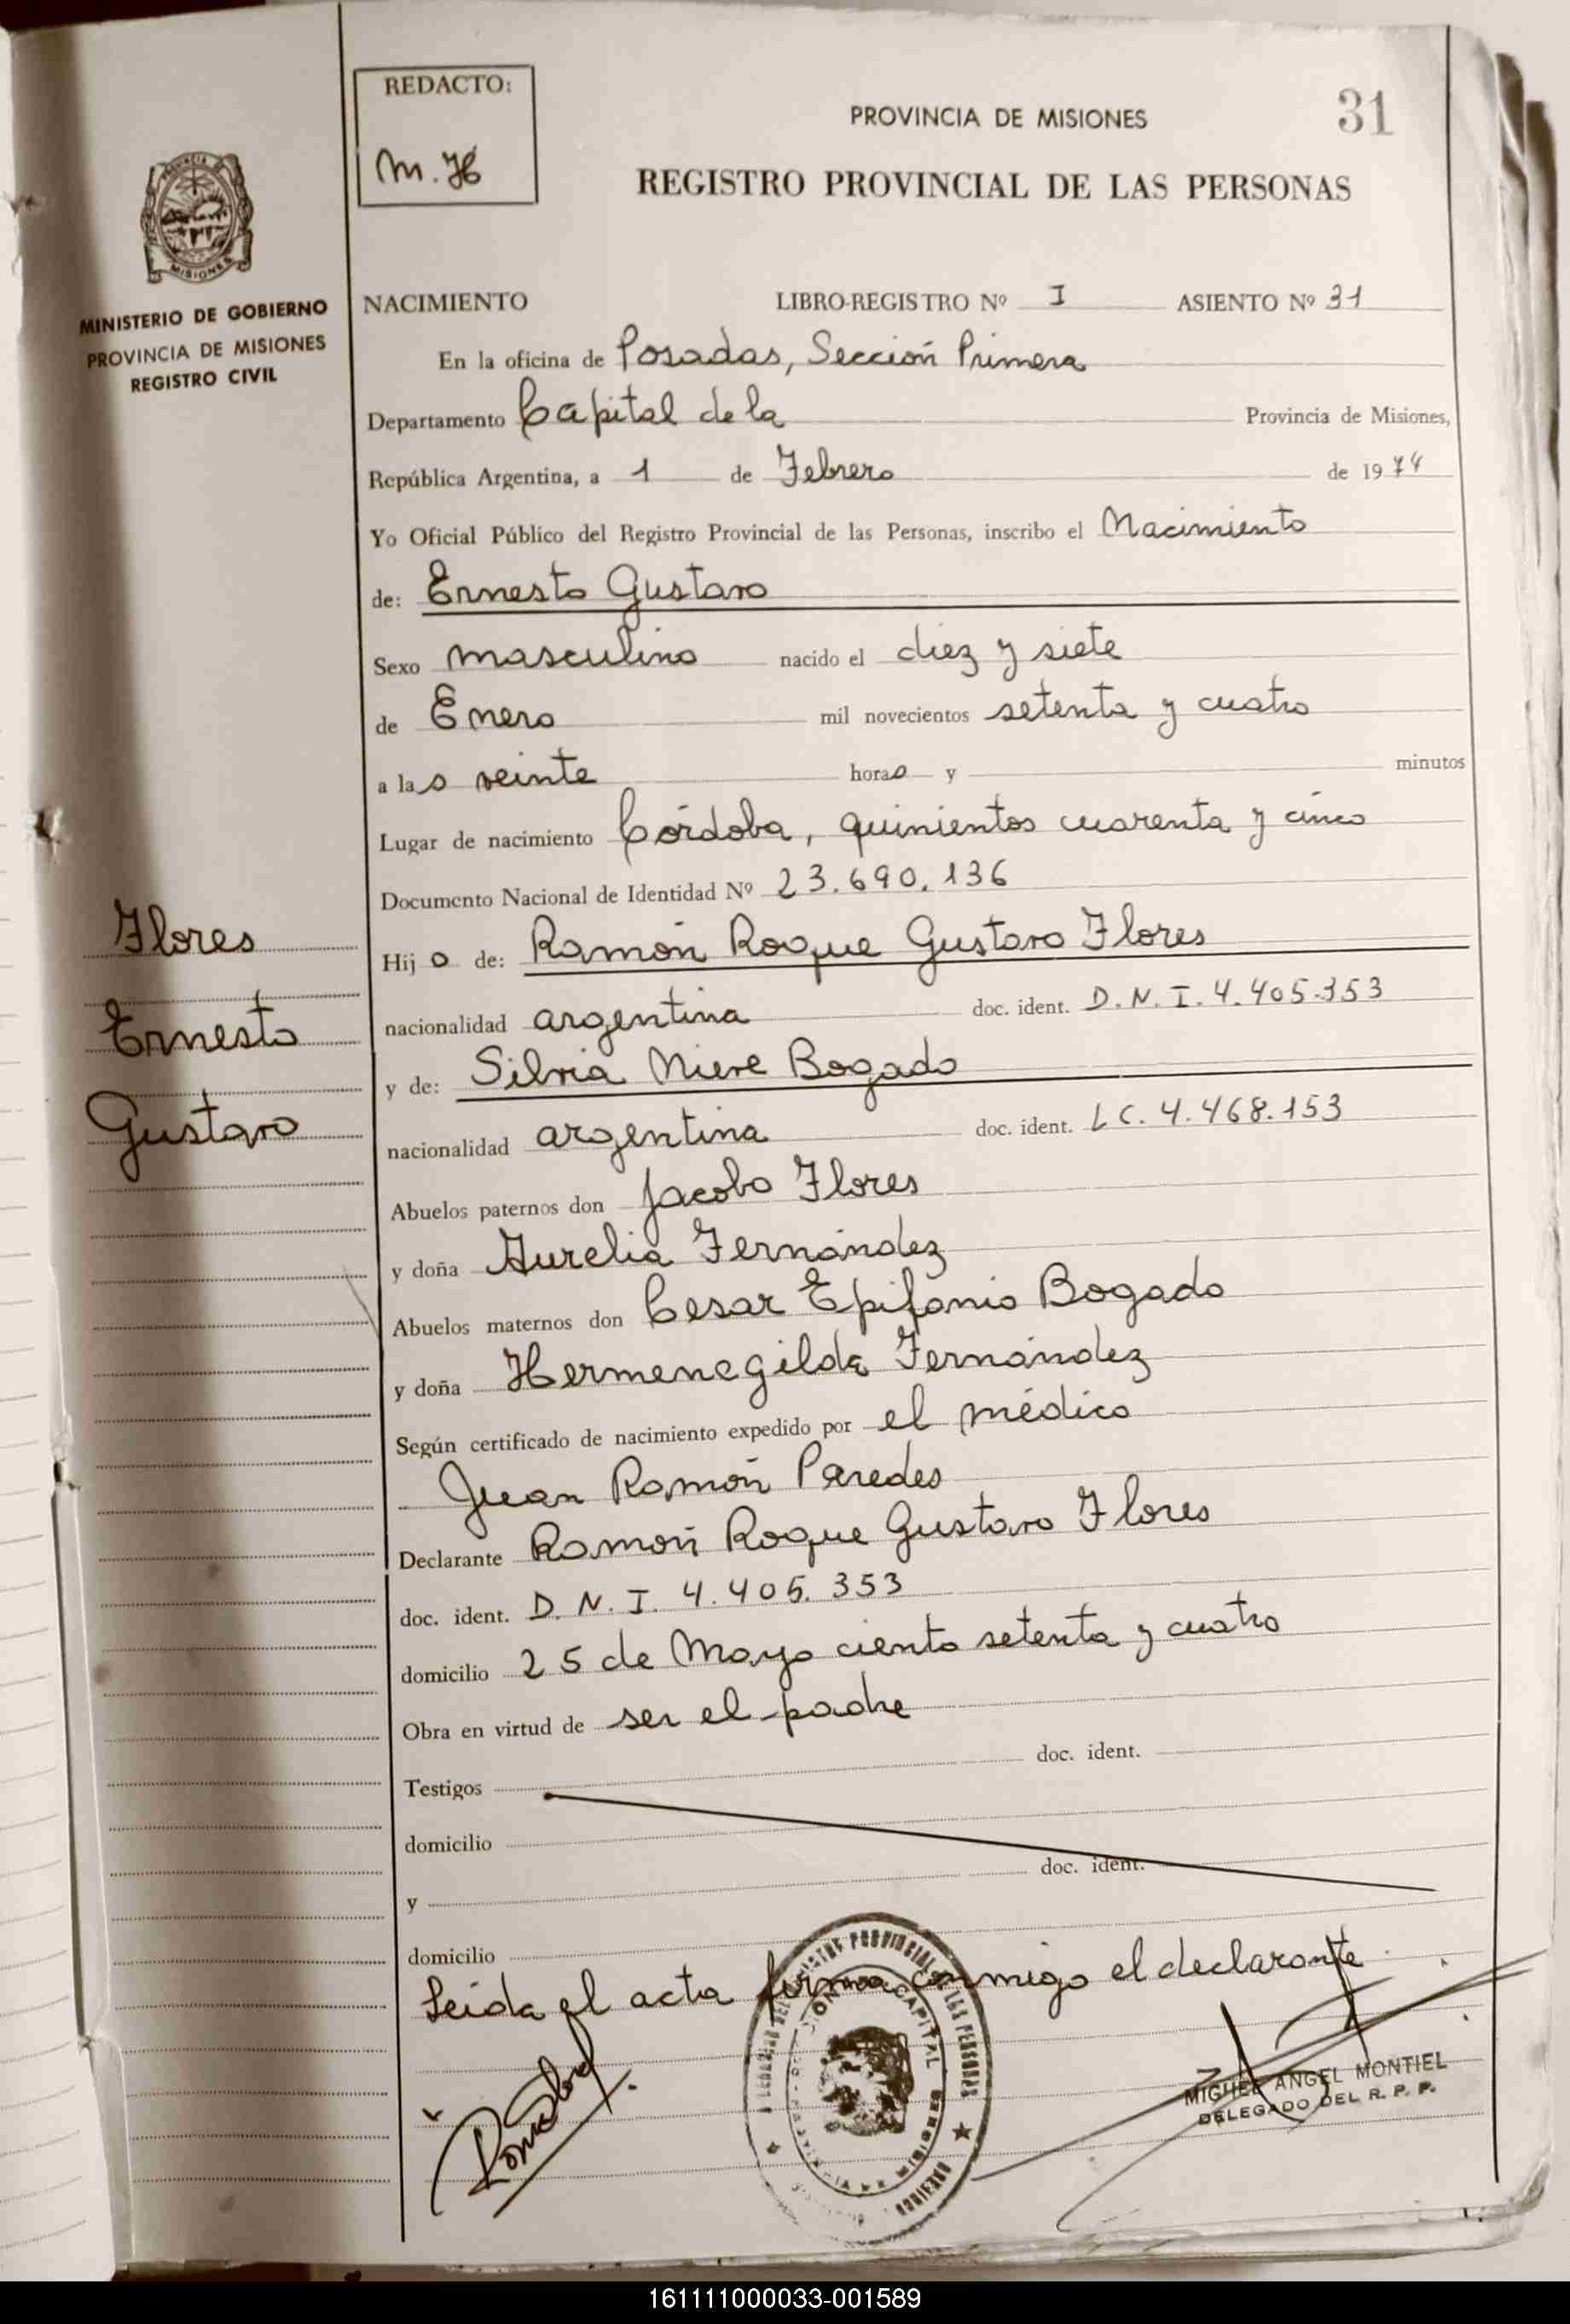 REDACTO:
M. H
PROVINCIA DE MISIONES
31
REGISTRO PROVINCIAL DE LAS PERSONAS
MISIONES
MINISTERIO DE GOBIERNO
PROVINCIA DE MISIONES
REGISTRO CIVIL
NACIMIENTO LIBRO-REGISTRO Nº I ASIENTO Nº 31
En la oficina de Posadas, Sección Primera
Departamento Capital de la Provincia de Misiones,
República Argentina, a 1 de Febrero de 1974
Yo Oficial Público del Registro Provincial de las Personas, inscribo el Nacimiento
de: Ernesto Gustavo
Sexo masculino nacido el diez y siete
de Enero mil novecientos setenta y cuatro
a las veinte horas y minutos
Lugar de nacimiento Córdoba, quinientos cuarenta y cinco
Documento Nacional de Identidad Nº 23.690.136
Flores
Ernesto
Gustavo
Hijo de: Ramón Roque Gustavo Flores
nacionalidad argentina doc. ident. D.N.I. 4.405.353
y de: Silvia Nieve Bogado
nacionalidad argentina doc. ident. LC. 4.468.153
Abuelos paternos don Jacobo Flores
y doña Aurelia Fernández
Abuelos maternos don Cesar Epifanio Bogado
y doña Hermenegilda Fernández
Según certificado de nacimiento expedido por el médico
Juan Ramón Paredes
Declarante Ramón Roque Gustavo Flores
doc. ident. D.N.I. 4.405.353
domicilio 25 de Mayo ciento setenta y cuatro
Obra en virtud de ser el padre
Testigos doc. ident.
domicilio
y doc. ident.
domicilio
Leída el acta firma conmigo el declarante
CAPITAL
MIGUEL ANGEL MONTIEL
DELEGADO DEL R. P. P.
161111000033-001589